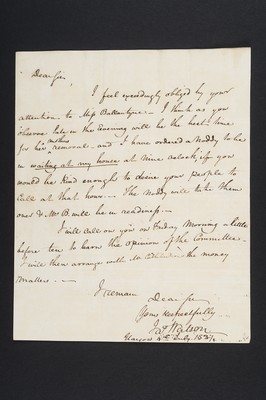 Dear Sir
I feel exceedingly obliged by your
attention to Miss Ballantyne — I think as you
observe late in the Evening will be the best time
for his mother's removal and I have ordered a Noddy to be
in waiting at my house at Nine oclock, if you
would be kind enough to desire your people to
call at that hour. — The Noddy will take them
over & Mr B. will be in readiness. —
I will call on you on Friday Morning a little
before ten to know the opinion of the Committee.
I will then arrange with Mr the money
matters. —
I remain
Dear Sir
Yours respectfully
Jas Watson
Glasgow 4th July 1831